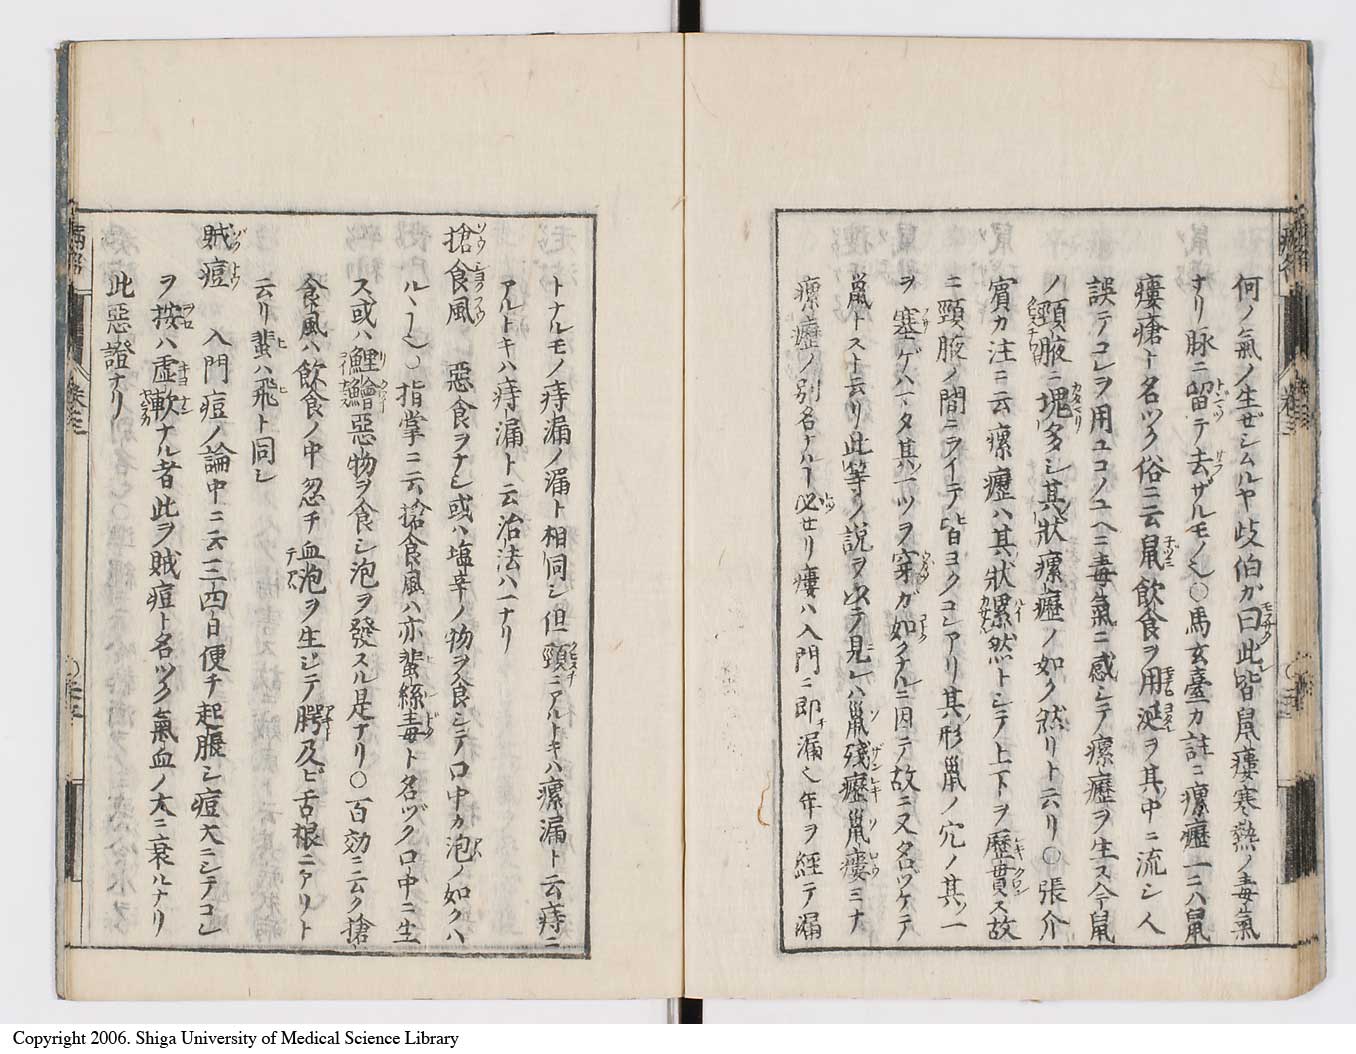 何ノ氣ノ生ゼシムルヤ歧伯ガ曰此皆鼠瘻寒熱ノ毒氣
ナリ脉ニ留テ去ザルモノ也○馬玄臺カ註ニ瘰癧一ニハ鼠
瘻瘡ト名ツク俗ニ云鼠飲食ヲ用涎ヲ其中ニ流シ人
誤テコレヲ用ユコノユヘニ毒氣ニ感シテ瘰癧ヲ生ス今鼠
ノ頸腋ニ塊多シ其狀瘰癧ノ如ク然リト云リ○張介
賓カ注ニ云瘰癧ハ其狀累然トシテ上下ヲ歷貫ス故
ニ頸腋ノ間ニヲイテ皆ヨクコレアリ其形鼠ノ穴ノ其一
ヲ塞ゲハマタ其一ツヲ穿ガ如クナルニ因テ故ニ又名ツケテ
鼠トスト云リ此等ノ説ヲ以テ見レハ鼠殘癧鼠瘻ミナ
瘰癧ノ別名ナルヿ必セリ瘻ハ入門ニ即チ漏也年ヲ経テ漏
トナルモノ痔漏ノ漏ト相同シ但頸ニアルトキハ瘰漏ト云痔ニ
アルトキハ痔漏ト云治法ハ一ナリ
搶食風 惡食ヲナシ或ハ塩辛ノ物ヲ食シテ口中カ泡ノ如クハ
ルヽヿ也○指掌ニ云搶食風ハ亦蜚絲毒ト名ヅク口中ニ生
ス或ハ鯉鱠惡物ヲ食シ泡ヲ發スル是ナリ○百効ニ云ク搶
食風ハ飲食ノ中忽チ血泡ヲ生シテ腭及ビ舌根ニアリト
云リ蜚ハ飛ト同シ
賊痘 入門痘ノ論中ニ云三四日便チ起脹シ痘大ニシテコレ
ヲ按ハ虚軟ナル者此ヲ賊痘ト名ツク氣血ノ大ニ衰ルナリ
此惡證ナリ
Copyright 2006. Shiga University of Medical Science Library